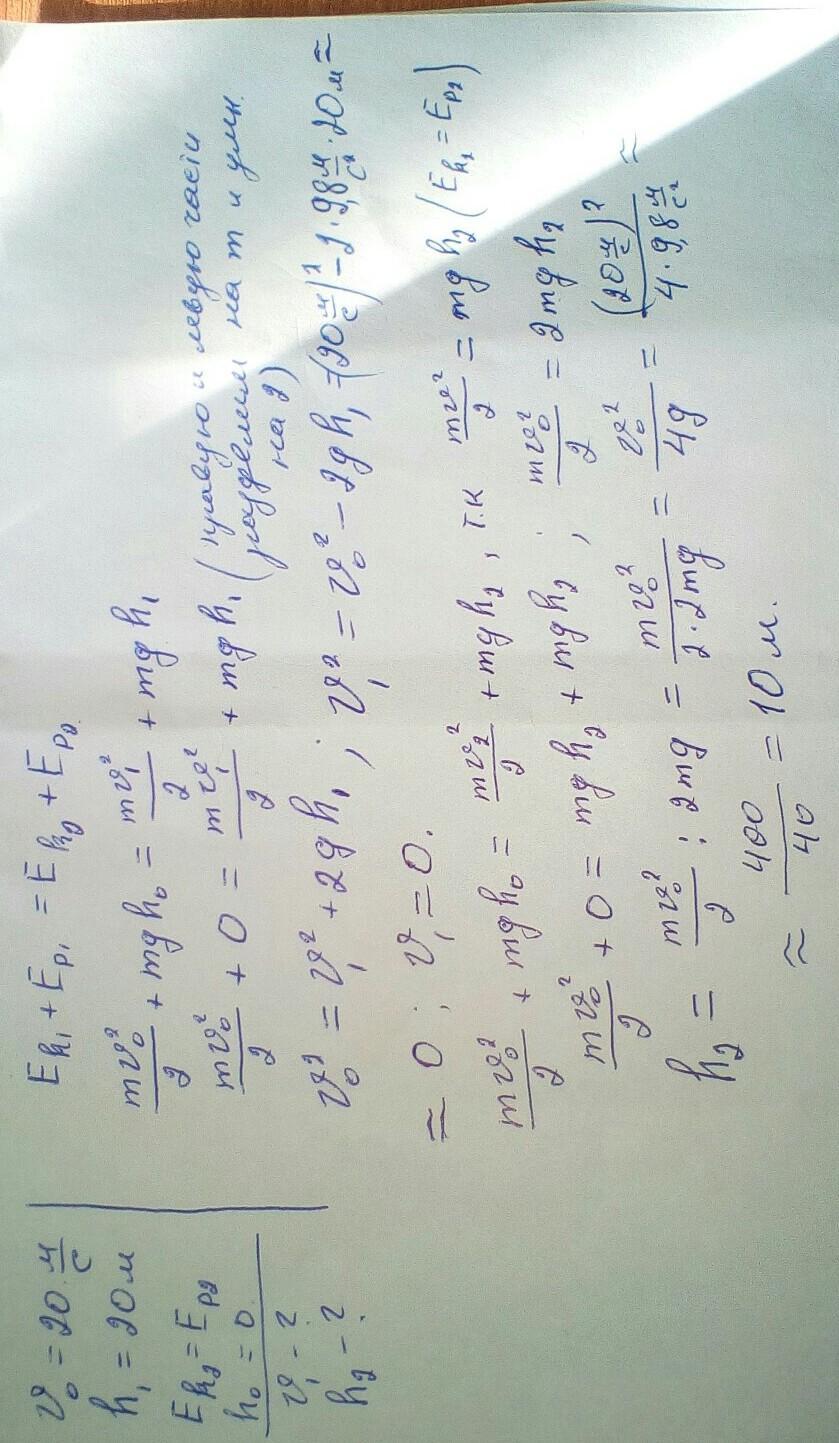 v₀ = 20 м/с
h₁ = 20 м
Eк₂ = Eр₂
h₀ = 0
v₁ - ?
h₂ - ?
Eк₁ + Eр₁ = Eк₂ + Eр₂
mv₀²/2 + mgh₀ = mv₁²/2 + mgh₁
mv₀²/2 + 0 = mv₁²/2 + mgh₁ (правую и левую части
разделим на m и умн.
на 2)
v₀² = v₁² + 2gh₁ ; v₁² = v₀² - 2gh₁ = (20 м/с)² - 2·9,8 м/с² · 20 м ≈
≈ 0 ; v₁ = 0.
mv₀²/2 + mgh₀ = mv₂²/2 + mgh₂ , т.к mv²/2 = mgh₂ (Eк₂ = Eр₂)
mv₀²/2 + 0 = mgh₂ + mgh₂ ; mv₀²/2 = 2mgh₂
h₂ = mv₀²/2 : 2mg = mv₀²/2·2mg = v₀²/4g = (20 м/с)²/4·9,8 м/с² ≈
≈ 400/40 = 10 м.